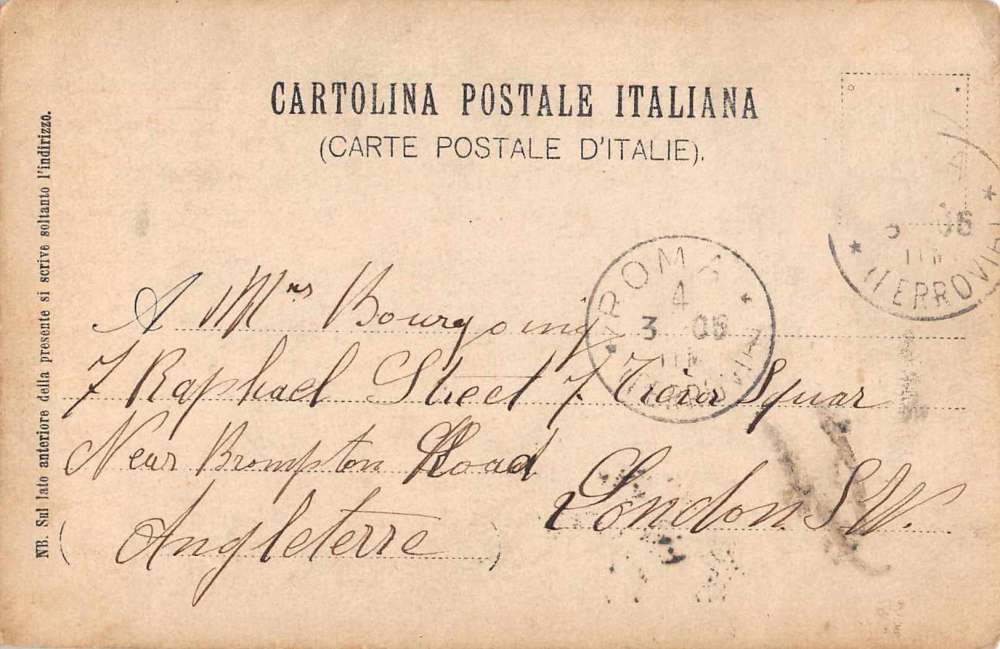 CARTOLINA POSTALE ITALIANA
(CARTE POSTALE D'ITALIE).
NB. Sul lato anteriore della presente si scrive soltanto l'indirizzo.
ROMA
4
3 05
FERROVIA
3 06
FERROVIA
A Mrs Bourgoing
7 Raphael Street 7 Trevor Squar
Near Brompton Road
London S.W.
(Angleterre)